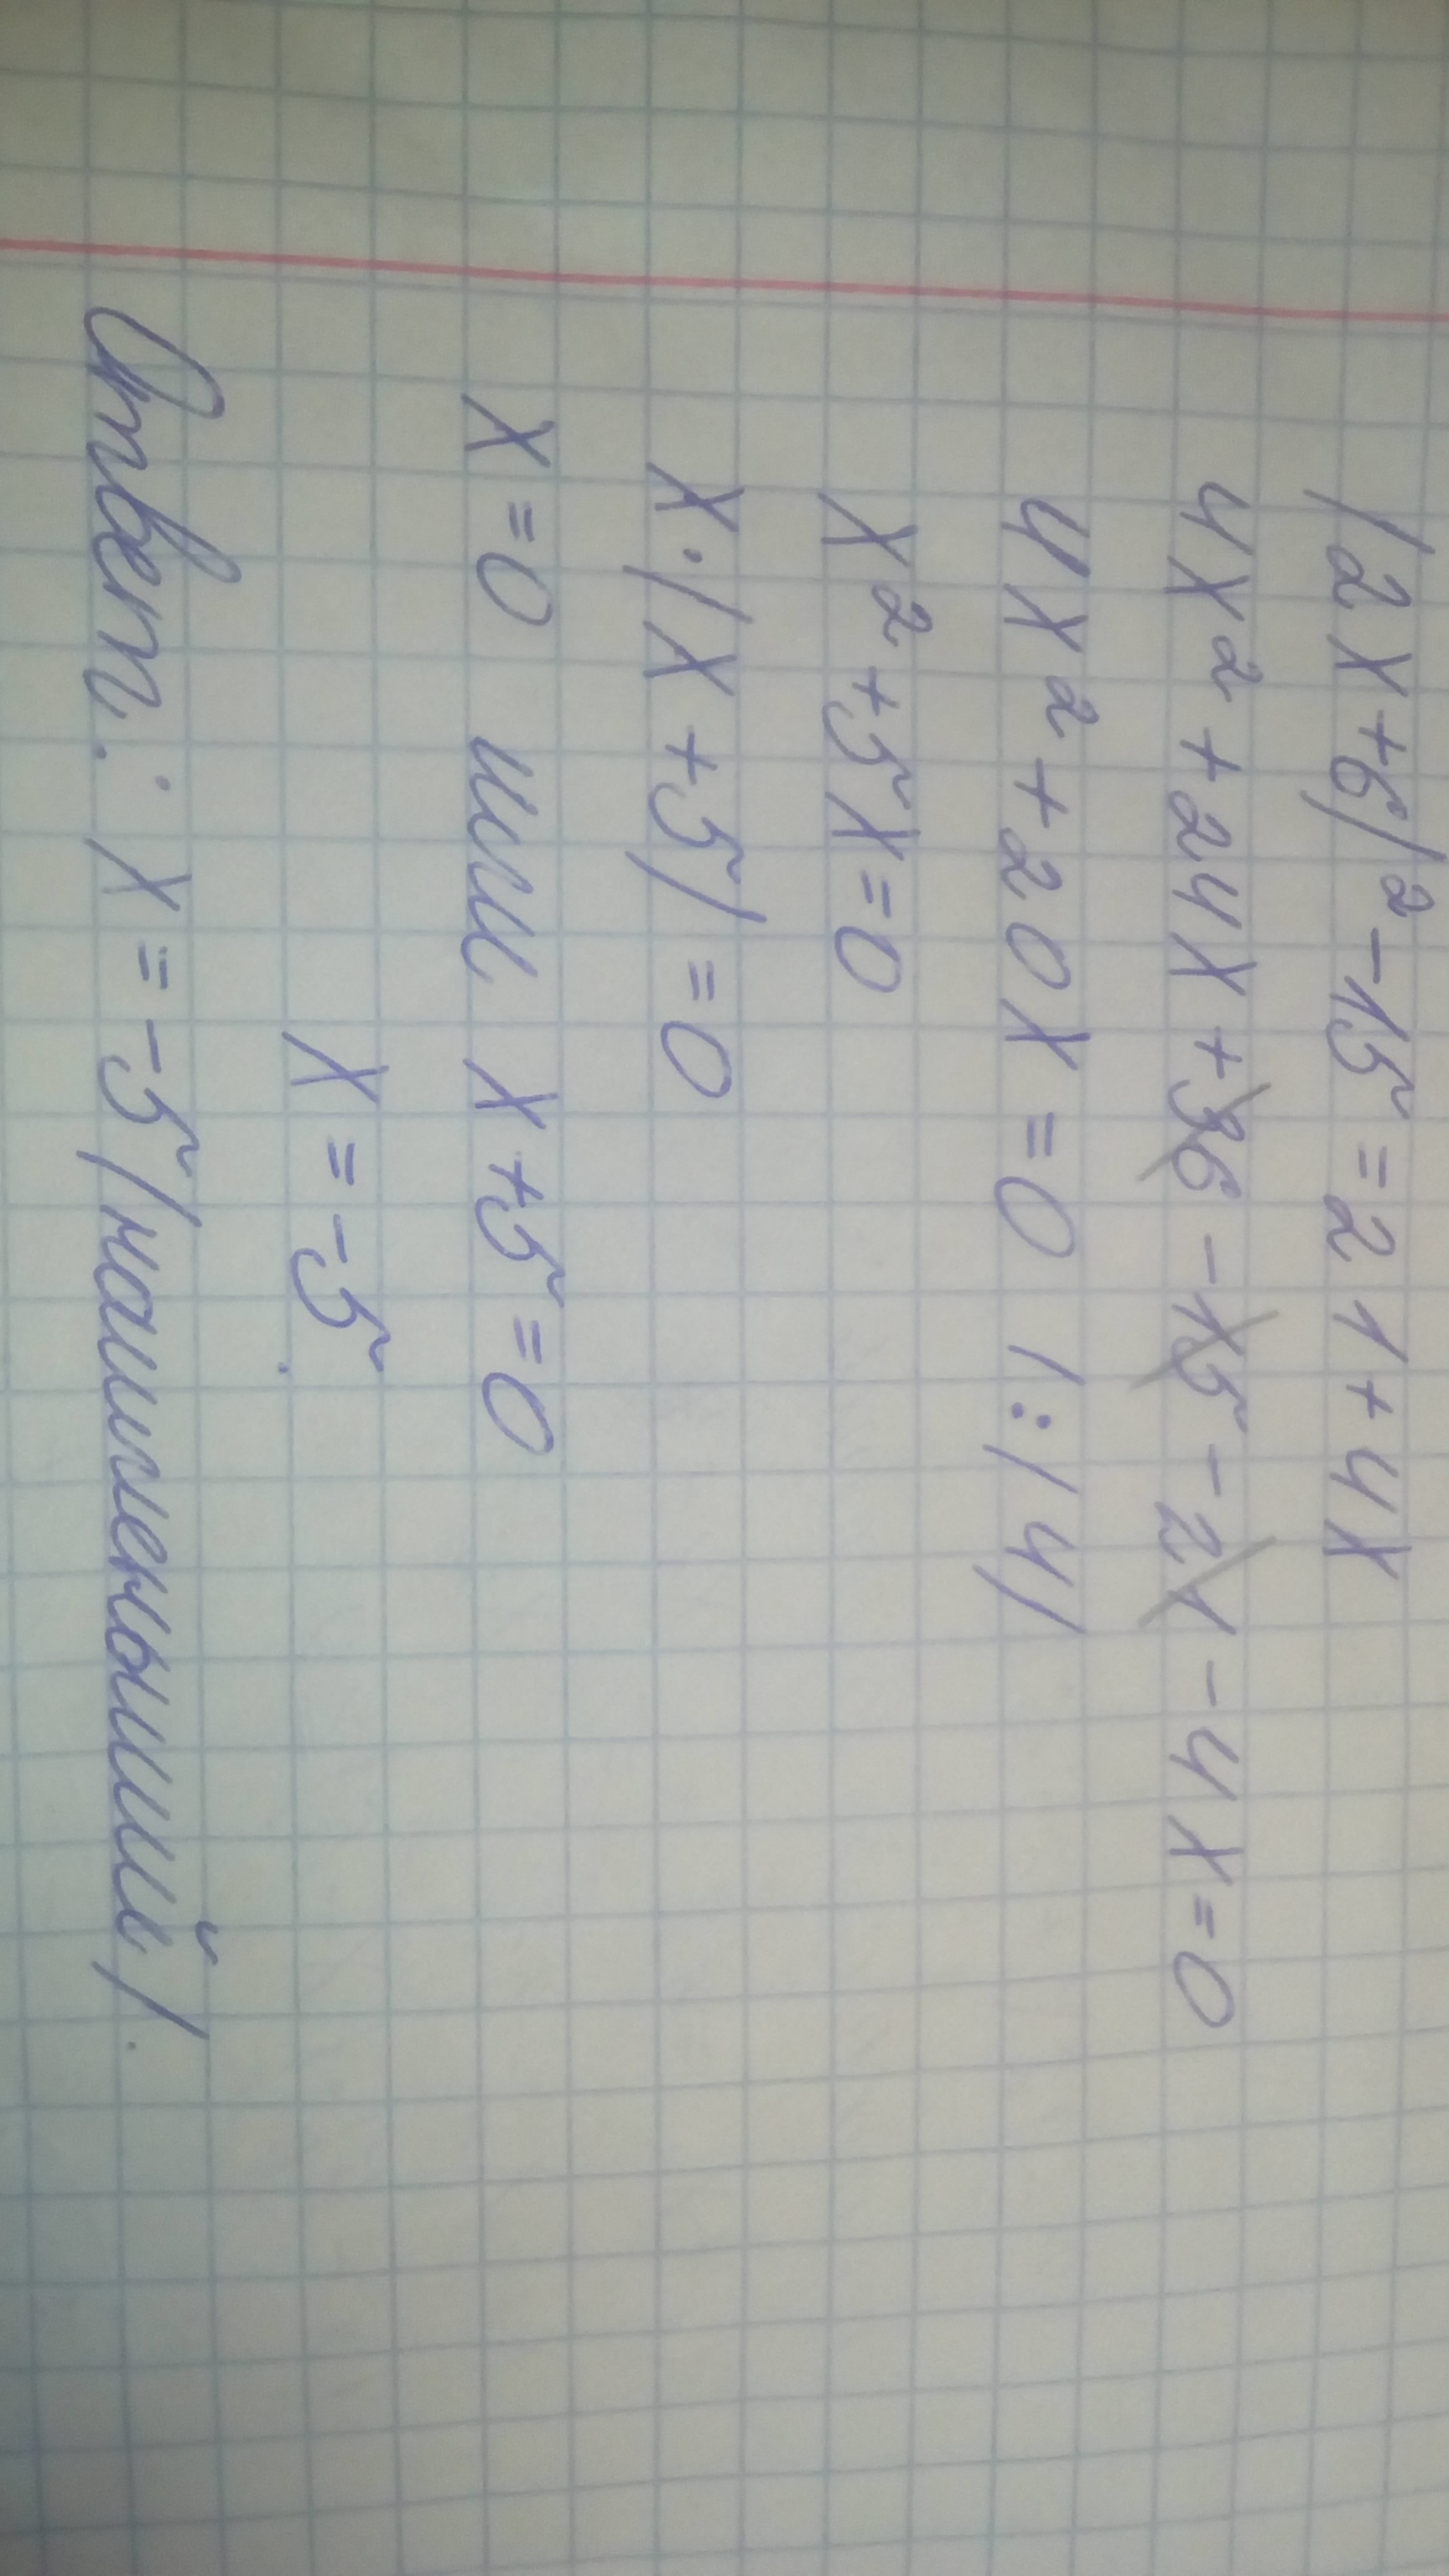 (2x+6)²-15=21+4x
4x²+24x+36-15-21-4x=0
4x²+20x=0 |:(4)
x²+5x=0
x·(x+5)=0
x=0 или x+5=0
x=-5.
Ответ: x=-5(наименьший).